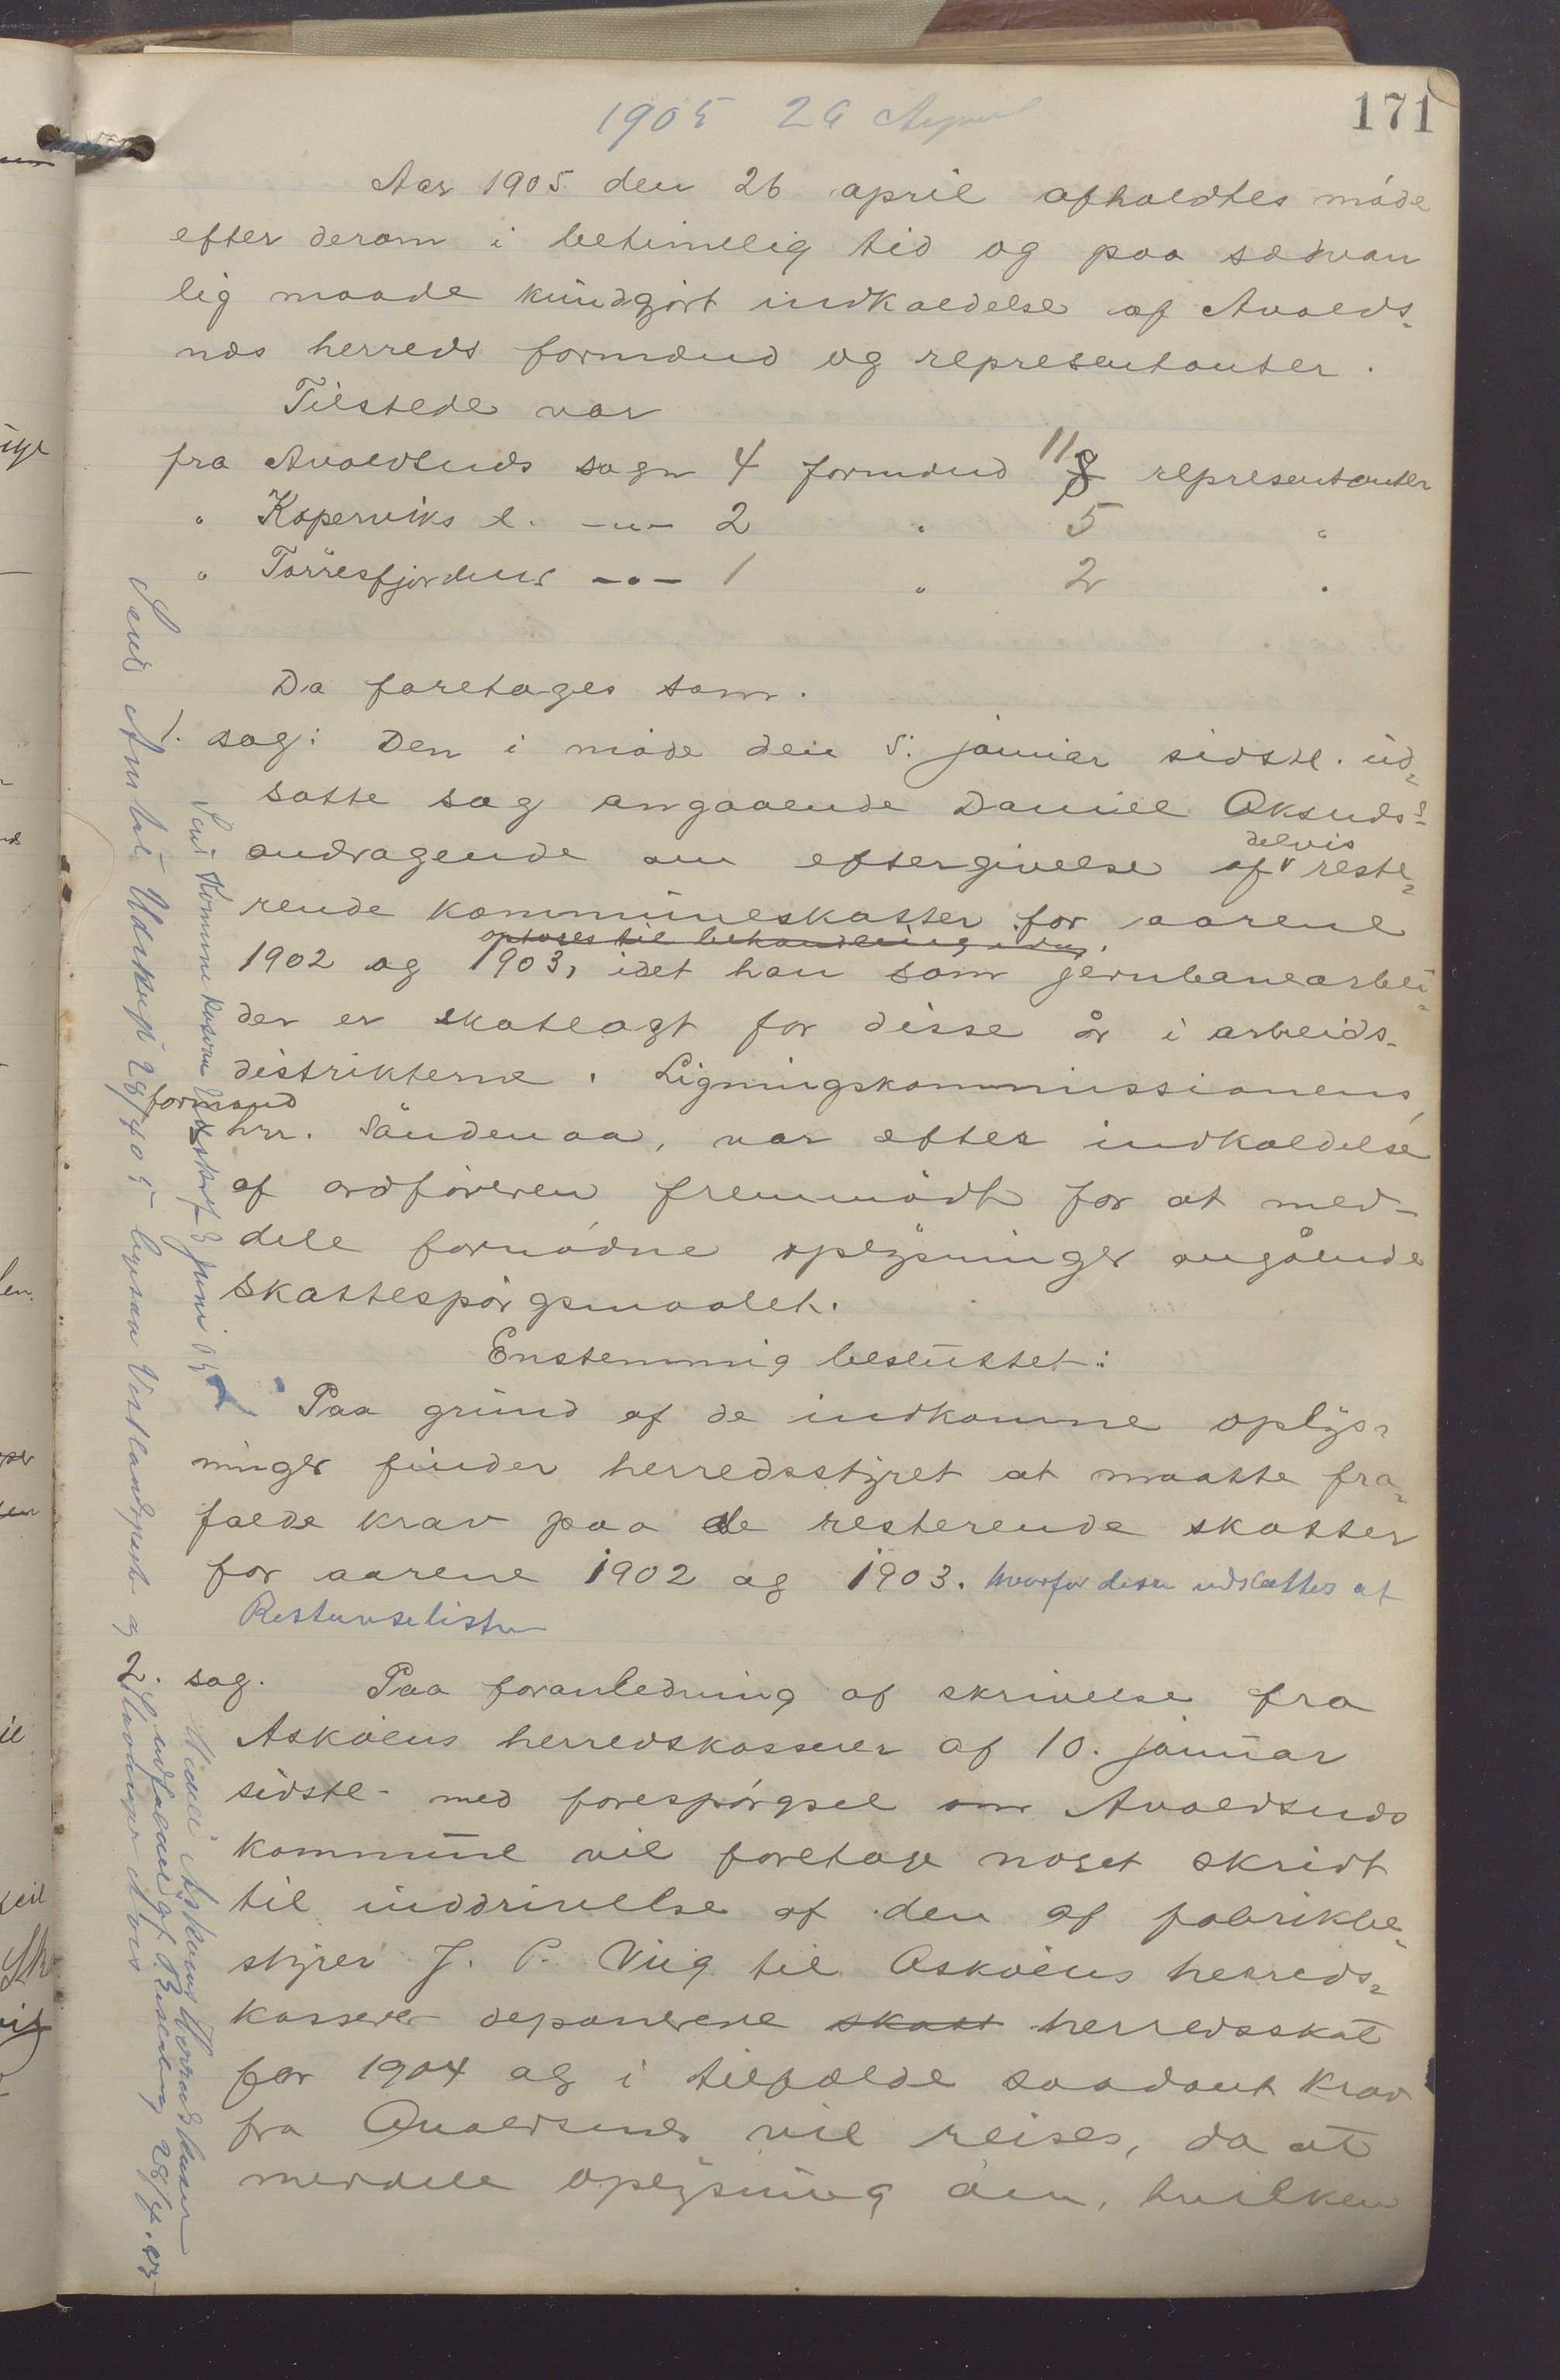 171
1905 26 April
Aar 1905 den 26 april afholdtes møde
efter derom i betimelig tid og paa sædvan
lig maade kundgjort indkaldelse af Avalds-
næs herreds formænd og representanter.
Tilstede var
fra Avaldsnæs sogn 4 formænd 11 8 representanter
" Koperviks l. -"- 2 " 5 "
" Torresfjordens -"- 1 " 2 "
Da foretages som.
1. sag: Den i møde den 5. januar sidstl. ud-
satte sag angaaende Daniel Aksnes's
delvis
andragende om eftergivelse af v reste-
rende kommuneskatter for aarene
optages til behandling
1902 og 1903, idet han som jernbanearbei-
der er skatlagt for disse år i arbeids-
distrikterne. Ligningskommissionens
formand
hrr. Søndenaa, var efter indkaldelse
af ordføreren fremmødt for at med-
dele fornødne oplysninger angående
skattespørgsmaalet.
Enstemmig besluttet:
" Paa grund af de indkomne oplys-
ninger finder herredsstyret at maatte fra-
falde krav paa de resterende skatter
for aarene 1902 og 1903. hvorfor disse udslettes af
Restanselisten
2. sag. Paa foranledning af skrivelse fra
Askøens herredskasserer af 10. januar
sidstl. med forespørgsel om Avaldsnæs
kommune vil foretage noget skridt
til inddrivelse af den af fabrikbe-
styrer J. P. Viig til Askøens herreds-
kasserer deponerede skatt herredsskat
for 1904 og i tilfælde saadant krav
fra Avaldsnæs vil reises, da at
meddele oplysning om, hvilken
Sendt Amtet Udskrift 28/4 05 Vestlandsposten og
Stavanger Avis
Sendt Kommunekasseren Udskrift 3 juni 05
Meddelt Askøens Herredskasserer
indholdet af Beslutning 28/4. 05